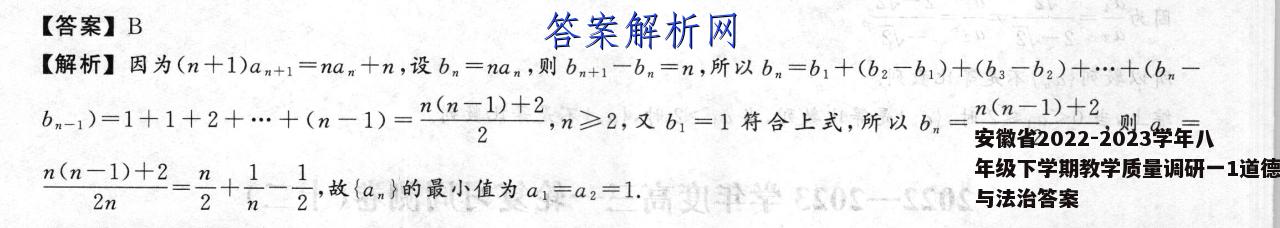 【答案】B
答案解析网
【解析】因为(n+1)aₙ₊₁=naₙ+n,设 bₙ=naₙ,则 bₙ₊₁-bₙ=n,所以 bₙ=b₁+(b₂-b₁)+(b₃-b₂)+…+(bₙ-
bₙ₋₁)=1+1+2+…+(n-1)=\frac{n(n-1)+2}{2},n≥2,又 b₁=1 符合上式,所以 bₙ=\frac{n(n-1)+2}{2},则 aₙ=
\frac{n(n-1)+2}{2n}=\frac{n}{2}+\frac{1}{n}-\frac{1}{2},故{aₙ}的最小值为 a₁=a₂=1.
安徽省2022-2023学年八
年级下学期教学质量调研一1道德
与法治答案